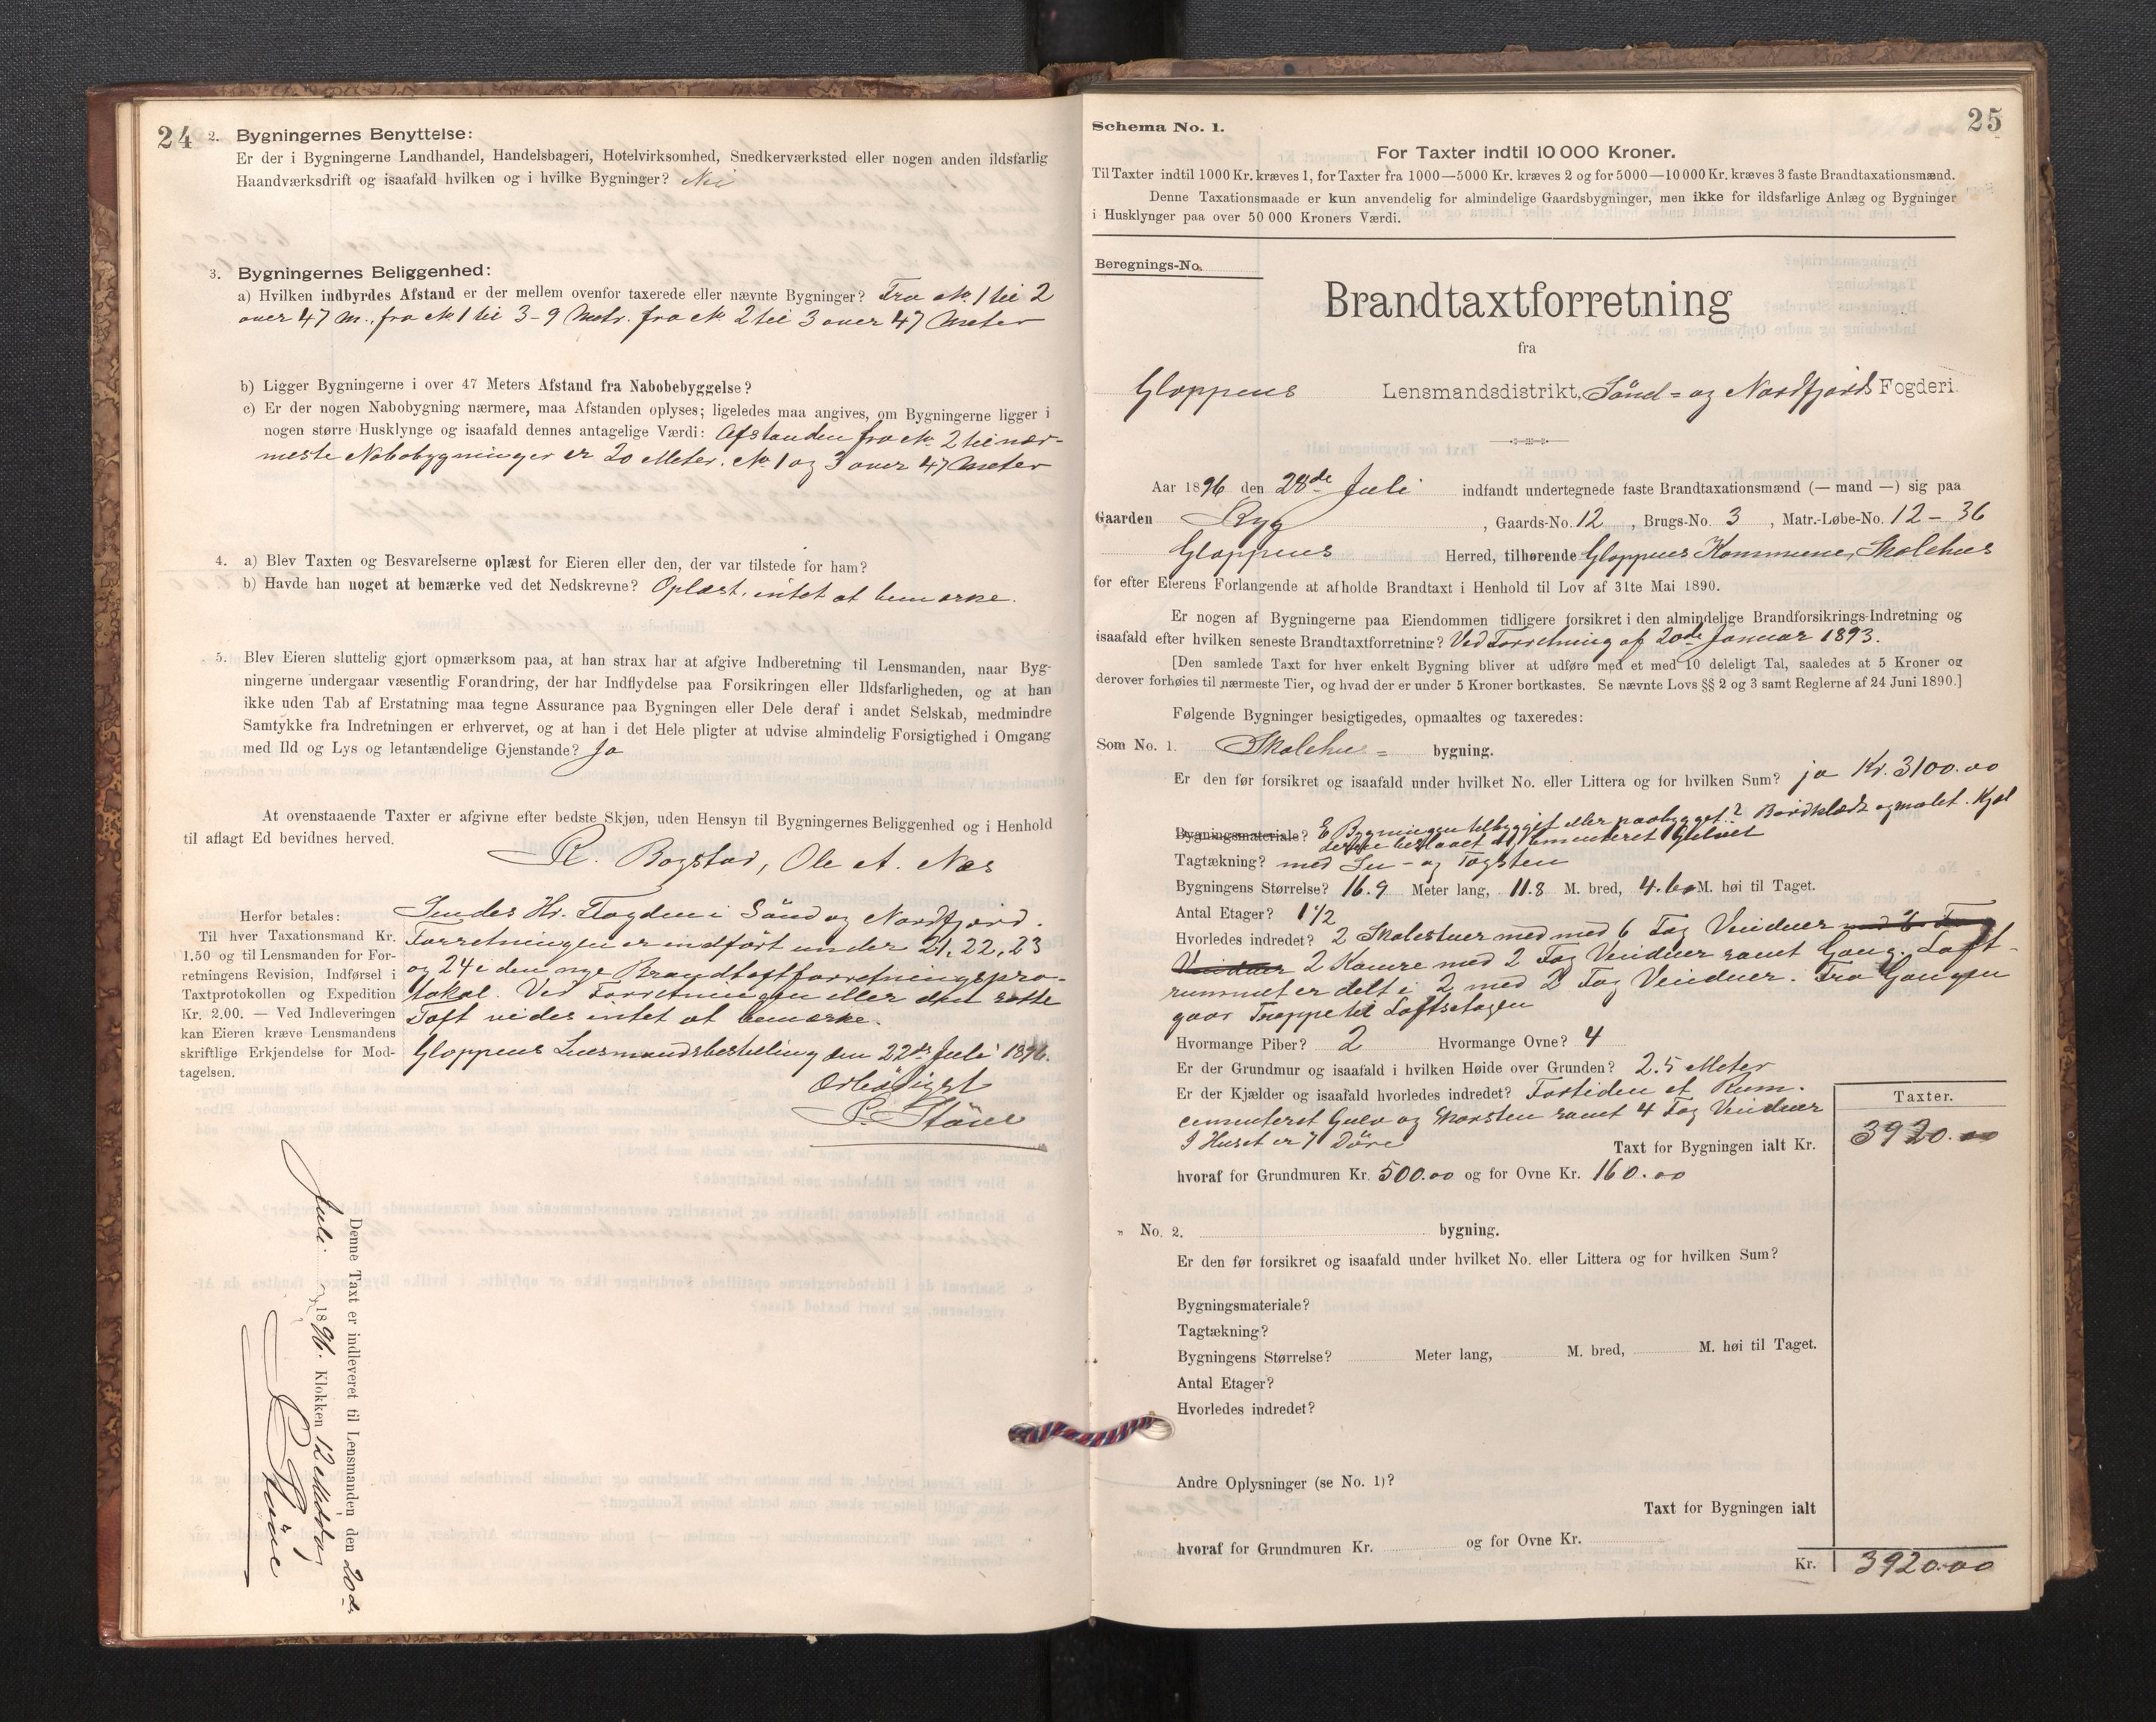 24
2. Bygningernes Benyttelse:
Er der i Bygningerne Landhandel, Handelsbageri, Hotelvirksomhed, Snedkerværksted eller nogen anden ildsfarlig
Haandværksdrift og isaafald hvilken og i hvilke Bygninger? Nei
3. Bygningernes Beliggenhed:
a) Hvilken indbyrdes Afstand er der mellem ovenfor taxerede eller nævnte Bygninger? Fra No. 1 til 2
over 47 M., fra No. 1 til 3 - 9 Metr. fra No. 2 til 3 over 47 Meter
b) Ligger Bygningerne i over 47 Meters Afstand fra Nabobebyggelse?
c) Er der nogen Nabobygning nærmere, maa Afstanden oplyses; ligeledes maa angives, om Bygningerne ligger i
nogen større Husklynge og isaafald dennes antagelige Værdi: Afstanden fra No. 2 til nær-
meste Nabobygninger er 20 Meter. No. 1 og 3 over 47 Meter
4. a) Blev Taxten og Besvarelserne oplæst for Eieren eller den, der var tilstede for ham?
b) Havde han noget at bemærke ved det Nedskrevne? Oplæst, intet at bemærke.
5. Blev Eieren sluttelig gjort opmærksom paa, at han strax har at afgive Indberetning til Lensmanden, naar Byg-
ningerne undergaar væsentlig Forandring, der har Indflydelse paa Forsikringen eller Ildsfarligheden, og at han
ikke uden Tab af Erstatning maa tegne Assurance paa Bygningen eller Dele deraf i andet Selskab, medmindre
Samtykke fra Indretningen er erhvervet, og at han i det Hele pligter at udvise almindelig Forsigtighed i Omgang
med Ild og Lys og letantændelige Gjenstande? Ja
At ovenstaaende Taxter er afgivne efter bedste Skjøn, uden Hensyn til Bygningernes Beliggenhed og i Henhold
til aflagt Ed bevidnes herved.
R. Bogstad, Ole A. Næs
Herfor betales:
Til hver Taxationsmand Kr.
1.50 og til Lensmanden for For-
retningens Revision, Indførsel i
Taxtprotokollen og Expedition
Kr. 2.00. — Ved Indleveringen
kan Eieren kræve Lensmandens
skriftlige Erkjendelse for Mod-
tagelsen.
Sendes Hr. Fogden i Sönd og Nordfjord.
Forretningen er indført under 21, 22, 23
og 24 i den nye Brandtaxtforretningspro-
tokol. Ved Forretningen eller den satte
Taxt vides intet at bemærke.
Gloppens Lensmandsbestilling den 22de Juli 1896.
Ærbødigst
Denne Taxt er indleveret til Lensmanden den 20de
Juli 1896. Klokken 12 Middag
25
Schema No. 1.
For Taxter indtil 10 000 Kroner.
Til Taxter indtil 1000 Kr. kræves 1, for Taxter fra 1000—5000 Kr. kræves 2 og for 5000—10 000 Kr. kræves 3 faste Brandtaxationsmænd.
Denne Taxationsmaade er kun anvendelig for almindelige Gaardsbygninger, men ikke for ildsfarlige Anlæg og Bygninger
i Husklynger paa over 50 000 Kroners Værdi.
Beregnings-No.
Brandtaxtforretning
fra
Gloppens Lensmandsdistrikt, Sönd- og Nordfjords Fogderi.
Aar 1896 den 28de Juli indfandt undertegnede faste Brandtaxationsmænd (— mand —) sig paa
Gaarden Ryg, Gaards-No. 12, Brugs-No. 3, Matr.-Løbe-No. 12 - 36
Gloppens Herred, tilhørende Gloppens Kommune, Skolehus
for efter Eierens Forlangende at afholde Brandtaxt i Henhold til Lov af 31te Mai 1890.
Er nogen af Bygningerne paa Eiendommen tidligere forsikret i den almindelige Brandforsikrings-Indretning og
isaafald efter hvilken seneste Brandtaxtforretning? Ved Forretning af 20de Januar 1893.
[Den samlede Taxt for hver enkelt Bygning bliver at udføre med et med 10 deleligt Tal, saaledes at 5 Kroner og
derover forhøies til nærmeste Tier, og hvad der er under 5 Kroner bortkastes. Se nævnte Lovs §§ 2 og 3 samt Reglerne af 24 Juni 1890.]
Følgende Bygninger besigtigedes, opmaaltes og taxeredes:
Som No. 1. Skolehus= bygning.
Er den før forsikret og isaafald under hvilket No. eller Littera og for hvilken Sum? ja Kr. 3100.00
Bygningsmateriale? Er Bygningen tilbygget eller paabygget? Bordklædt og malet. Kjæl
cementeret Gulvet
Tagtækning? med og Tagsten
Bygningens Størrelse? 16.9 Meter lang, 11.8 M. bred, 4.60 M. høi til Taget.
Antal Etager? 1 1/2
Hvorledes indredet? 2 Skolestuer med med 6 Fag Vinduer med 6 Fag
Vinduer 2 Kamre med 2 Fag Vinduer samt Gang. Loft-
rummet er delt i 2 med 2 Fag Vinduer. Fra Gangen
gaar Trappe til Loftsetagen
Hvormange Piber? 2 Hvormange Ovne? 4
Er der Grundmur og isaafald i hvilken Høide over Grunden? 2.5 Meter
Er der Kjælder og isaafald hvorledes indredet? Fortiden et Rum.
cementeret Gulv og Skorsten samt 4 Fag Vinduer
I Huset er 7 Döre
Taxter.
Taxt for Bygningen ialt Kr. 3920.00
hvoraf for Grundmuren Kr. 500.00 og for Ovne Kr. 160.00
„ No. 2. bygning.
Er den før forsikret og isaafald under hvilket No. eller Littera og for hvilken Sum?
Bygningsmateriale?
Tagtækning?
Bygningens Størrelse? Meter lang, M. bred, M. høi til Taget.
Antal Etager?
Hvorledes indredet?
Andre Oplysninger (se No. 1)?
Taxt for Bygningen ialt
hvoraf for Grundmuren Kr. og for Ovne Kr.
Kr. 3920.00